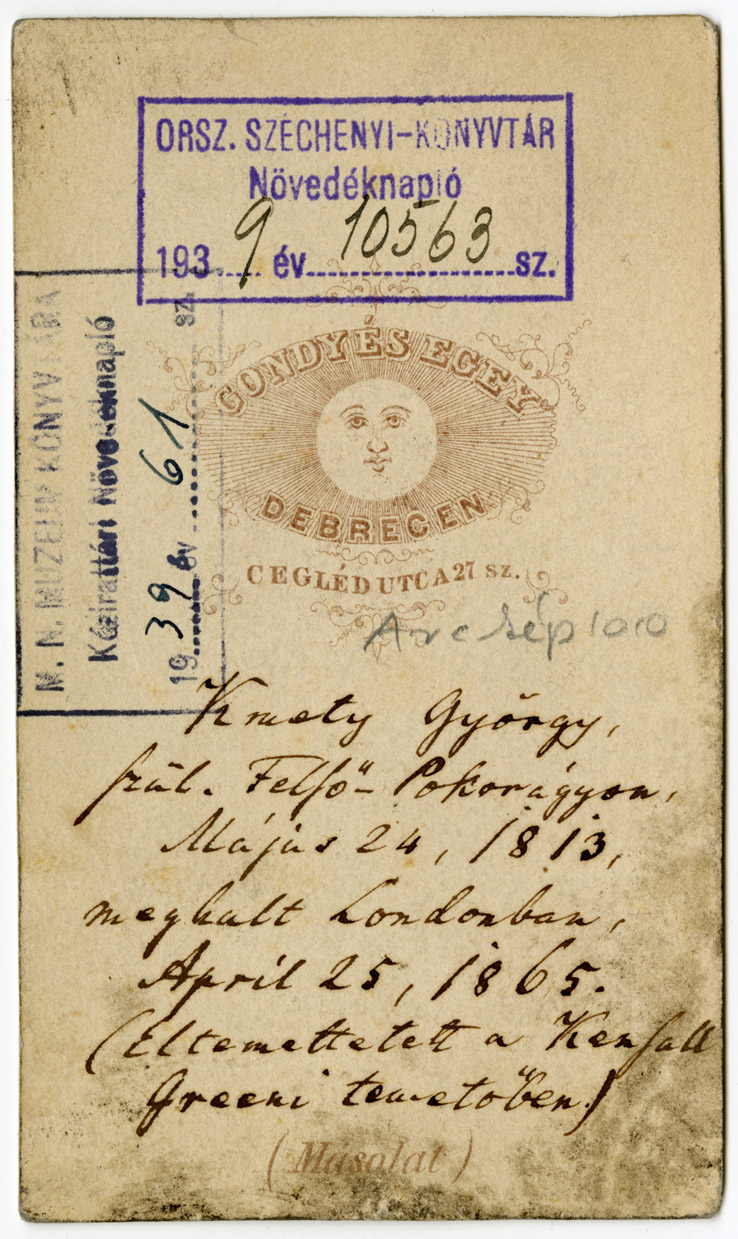 ORSZ. SZÉCHENYI-KÖNYVTÁR
Növedéknapló
1939 év 10563 sz.
M. N. MUZEUM KÖNYVTÁRA
Kézirattári Növedéknapló
1939 év 61 sz.
GONDY ÉS EGEY
DEBRECEN
CEGLÉD UTCA 27 SZ.
Arckép 1010
Kmety György,
szül. Felső-Pokorágyon,
Május 24, 1813,
meghalt Londonban,
April 25, 1865.
(Eltemettetett a Kensall
Greeni temetőben.)
(Másolat)